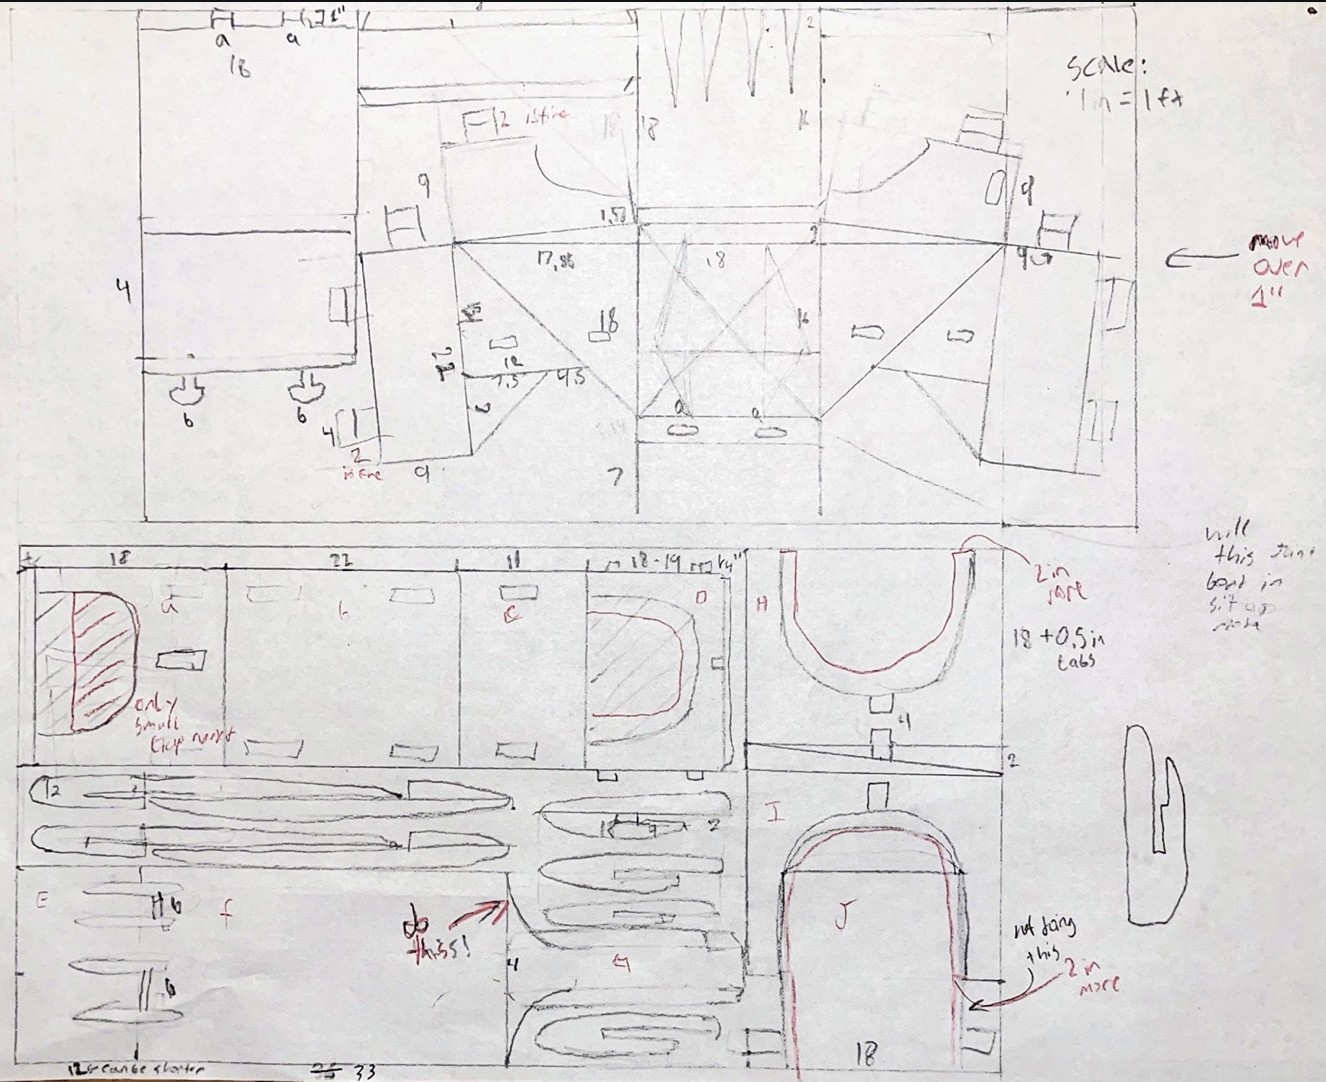 1"
a
a
18
2
SCALE:
1in = 1ft
2 is fine
18
18
16
9
9
1.53
2
17.86
18
9
move
over
1"
4
18
16
12
12
7.5
4.5
a
a
6
6
4
2
is fine
9
7
will
this
bend in
sit up
mode
18
22
11
18-19
1/4"
a
b
C
D
H
2in
more
18 + 0.5in
tabs
only
small
gap need
4
2
12
2
I
E
f
6
6
do
this!
4
G
J
not doing
this
2in
more
18
12 can be shorter
33